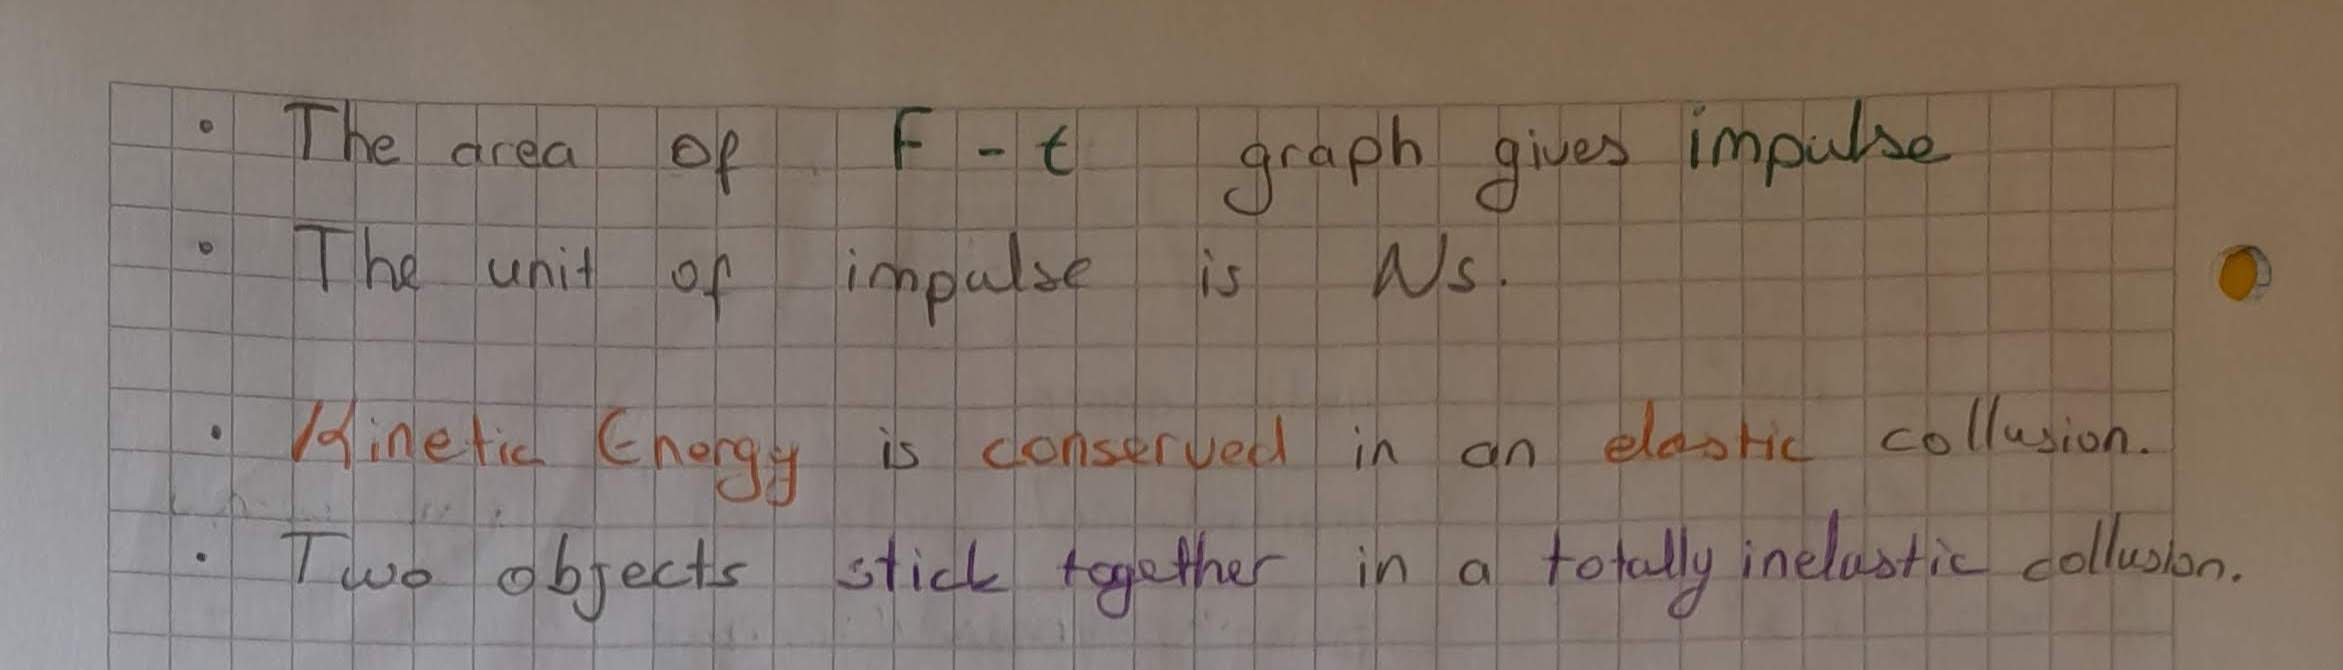 • The area of F - t graph gives impulse
• The unit of impulse is Ns.
• Kinetic Energy is conserved in an elastic collusion.
• Two objects stick together in a totally inelastic collusion.